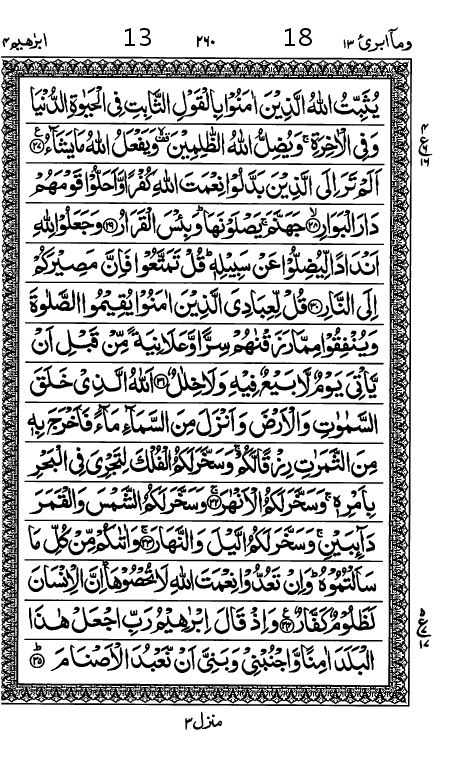 ابرٰهيم ١٤ 13 ٢٦٠ 18 ومآ ابرئ ١٣
يُثَبِّتُ اللّٰهُ الَّذِيْنَ اٰمَنُوْا بِالْقَوْلِ الثَّابِتِ فِى الْحَيٰوةِ الدُّنْيَا
وَفِى الْاٰخِرَةِ ۚ وَيُضِلُّ اللّٰهُ الظّٰلِمِيْنَ ۙ وَيَفْعَلُ اللّٰهُ مَا يَشَآءُ ﴿٢٧﴾
اَلَمْ تَرَ اِلَى الَّذِيْنَ بَدَّلُوْا نِعْمَتَ اللّٰهِ كُفْرًا وَّاَحَلُّوْا قَوْمَهُمْ
دَارَ الْبَوَارِ ﴿٢٨﴾ جَهَنَّمَ ۚ يَصْلَوْنَهَا ؕ وَبِئْسَ الْقَرَارُ ﴿٢٩﴾ وَجَعَلُوْا لِلّٰهِ
اَنْدَادًا لِّيُضِلُّوْا عَنْ سَبِيْلِهٖ ؕ قُلْ تَمَتَّعُوْا فَاِنَّ مَصِيْرَكُمْ
اِلَى النَّارِ ﴿٣٠﴾ قُلْ لِّعِبَادِىَ الَّذِيْنَ اٰمَنُوْا يُقِيْمُوا الصَّلٰوةَ
وَيُنْفِقُوْا مِمَّا رَزَقْنٰهُمْ سِرًّا وَّعَلَانِيَةً مِّنْ قَبْلِ اَنْ
يَّاْتِىَ يَوْمٌ لَّا بَيْعٌ فِيْهِ وَلَا خِلٰلٌ ﴿٣١﴾ اَللّٰهُ الَّذِىْ خَلَقَ
السَّمٰوٰتِ وَالْاَرْضَ وَاَنْزَلَ مِنَ السَّمَآءِ مَآءً فَاَخْرَجَ بِهٖ
مِنَ الثَّمَرٰتِ رِزْقًا لَّكُمْ ۚ وَسَخَّرَ لَكُمُ الْفُلْكَ لِتَجْرِىَ فِى الْبَحْرِ
بِاَمْرِهٖ ۚ وَسَخَّرَ لَكُمُ الْاَنْهٰرَ ﴿٣٢﴾ وَسَخَّرَ لَكُمُ الشَّمْسَ وَالْقَمَرَ
دَآئِبَيْنِ ۚ وَسَخَّرَ لَكُمُ الَّيْلَ وَالنَّهَارَ ﴿٣٣﴾ وَاٰتٰٮكُمْ مِّنْ كُلِّ مَا
سَاَلْتُمُوْهُ ؕ وَاِنْ تَعُدُّوْا نِعْمَتَ اللّٰهِ لَا تُحْصُوْهَا ؕ اِنَّ الْاِنْسَانَ
لَظَلُوْمٌ كَفَّارٌ ﴿٣٤﴾ وَاِذْ قَالَ اِبْرٰهِيْمُ رَبِّ اجْعَلْ هٰذَا
الْبَلَدَ اٰمِنًا وَّاجْنُبْنِىْ وَبَنِىَّ اَنْ نَّعْبُدَ الْاَصْنَامَ ﴿٣٥﴾
٤
ع
١٦
٥
ع
١٧
منزل ٣